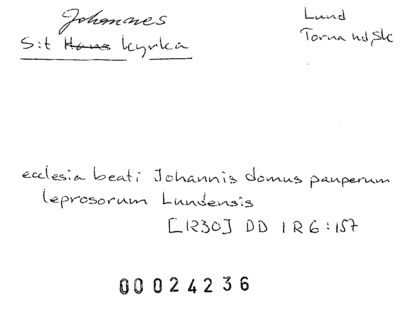 Johannes
S:t Hans kyrka
Lund
Torna hd, Sk
ecclesia beati Johannis domus pauperum
leprosorum Lundensis
[1230] DD 1 R 6:157
00024236